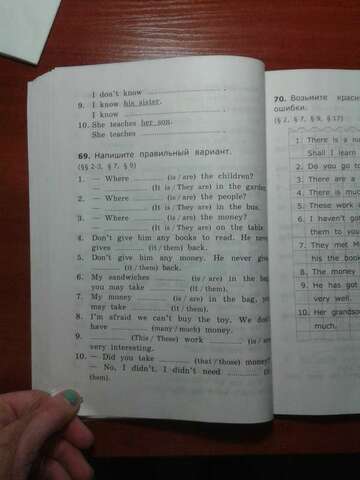 I don't know ....................
9. I know his sister.
I know ....................
10. She teaches her son.
She teaches ....................
69. Напишите правильный вариант.
(§§ 2-3, § 7, § 9)
1. — Where ______ (is / are) the children?
— ______ (It is / They are) in the garden
2. — Where ______ (is / are) the people?
— ______ (It is / They are) in the bus.
3. — Where ______ (is / are) the money?
— ______ (It is / They are) on the table
4. Don't give him any books to read. He never
gives ______ (it / them) back.
5. Don't give him any money. He never gives
______ (it / them) back.
6. My sandwiches ______ (is / are) in the bag,
you may take ______ (it / them).
7. My money ______ (is / are) in the bag, you
may take ______ (it / them).
8. I'm afraid we can't buy the toy. We don't
have ______ (many / much) money.
9. ______ (This / These) work ______ (is / are)
very interesting.
10. — Did you take ______ (that / those) money?
— No, I didn't. I didn't need ______ (it /
them).
70. Возьмите
ошибки.
(§ 2, § 7, § 9, § 17)
1. There is a
Shall I learn
2. Do you go
3. There are a
4. There is
5. These work
6. I haven't
them to
7. They met
his the
8. The money
9. He has got
very well.
10. Her
much.